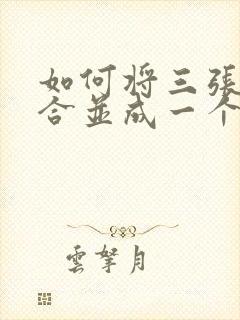 如何将三張
合並成一个
雲拏月